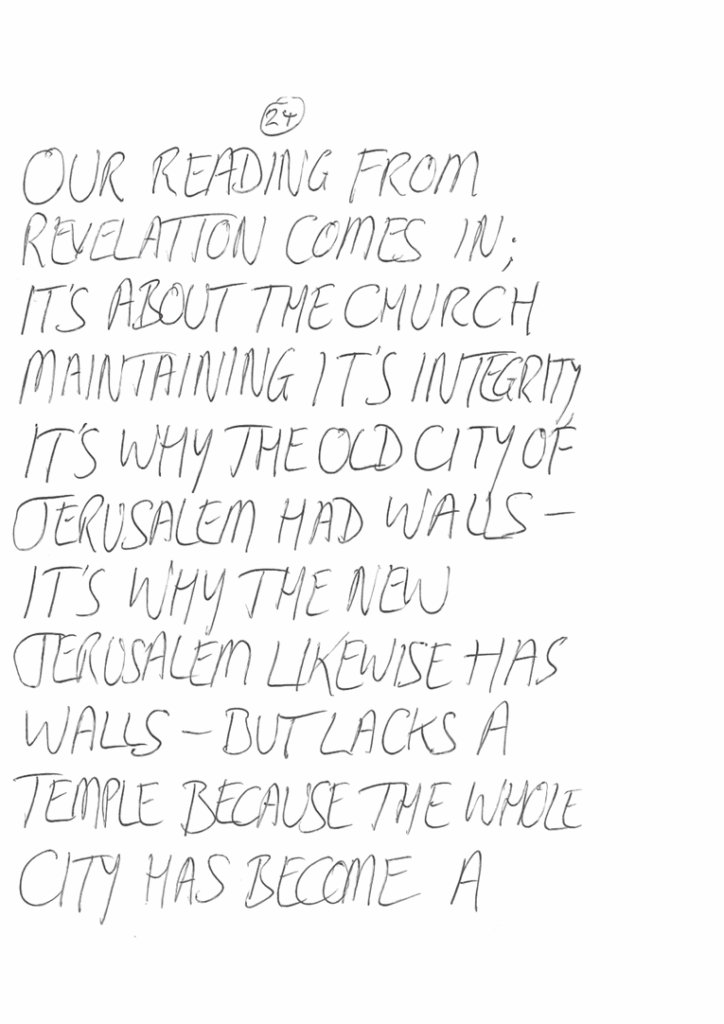 24
OUR READING FROM
REVELATION COMES IN;
IT'S ABOUT THE CHURCH
MAINTAINING IT'S INTEGRITY
IT'S WHY THE OLD CITY OF
JERUSALEM HAD WALLS –
IT'S WHY THE NEW
JERUSALEM LIKEWISE HAS
WALLS – BUT LACKS A
TEMPLE BECAUSE THE WHOLE
CITY HAS BECOME A